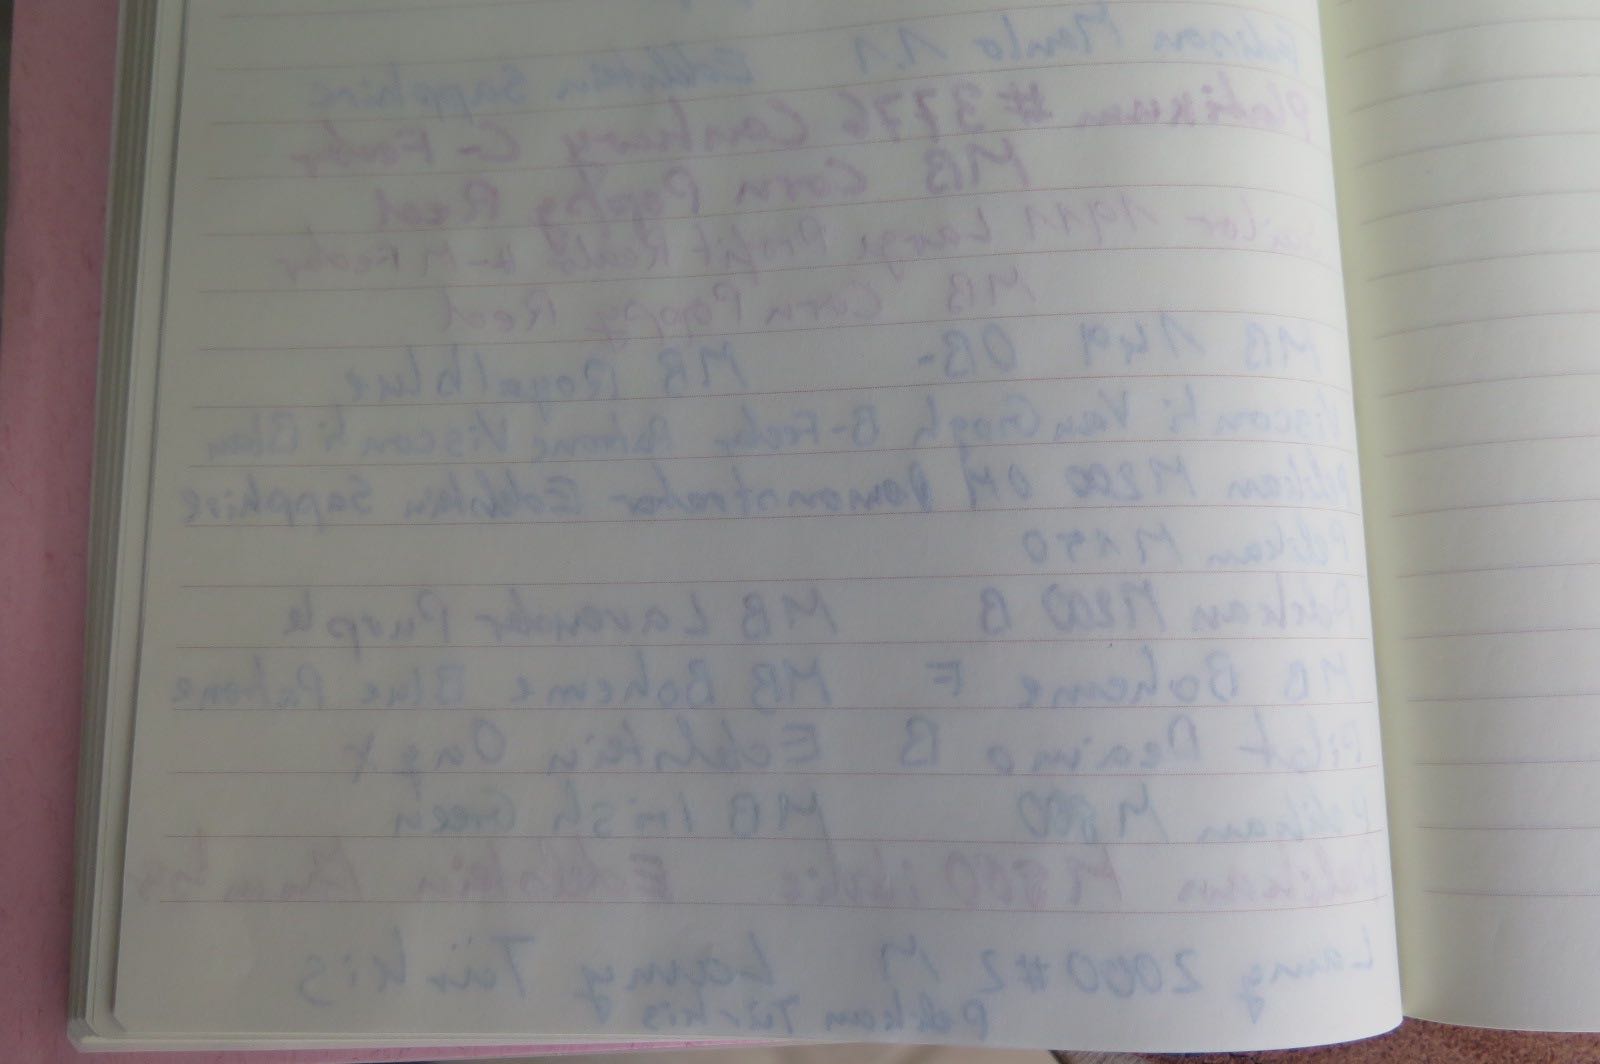 Edison Menlo 1.1 Edelstein Sapphire
Platinum #3776 Century C- Feder
MB Corn Poppy Red
1911 Large Profit Realo H-M Feder
MB Corn Poppy Red
MB 149 OB- MB Royalblue
Visconti Van Gogh B-Feder Patrone Visconti Blau
Pelikan M200 OM Demonstrator Edelstein Sapphire
Pelikan M150
Pelikan M200 B MB Lavender Purple
MB Boheme F MB Boheme Blue Patrone
Pilot B Edelstein Onyx
Pelikan M800 MB Irish Green
Pelikan M800 Edelstein
Lamy 2000 #2 M Lamy Türkis
Pelikan Türkis